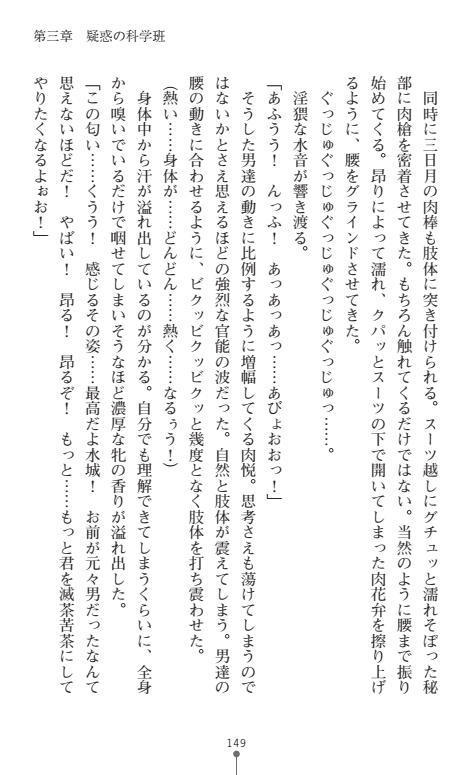 第三章　疑惑の科学班
同時に三日月の肉棒も肢体に突き付けられる。スーツ越しにグチュッと濡れそぼった秘
部に肉槍を密着させてきた。もちろん触れてくるだけではない。当然のように腰まで振り
始めてくる。昂りによって濡れ、クパッとスーツの下で開いてしまった肉花弁を擦り上げ
るように、腰をグラインドさせてきた。
ぐっじゅぐっじゅぐっじゅぐっじゅぐっじゅっ……。
淫猥な水音が響き渡る。
「あふうう！　んっふ！　あっあっあっ……あぴょおおっ！」
そうした男達の動きに比例するように増幅してくる肉悦。思考さえも蕩けてしまうので
はないかとさえ思えるほどの強烈な官能の波だった。自然と肢体が震えてしまう。男達の
腰の動きに合わせるように、ビクッビクッビクッと幾度となく肢体を打ち震わせた。
（熱い……身体が……どんどん……熱く……なるぅう！）
身体中から汗が溢れ出しているのが分かる。自分でも理解できてしまうくらいに、全身
から嗅いでいるだけで咽せてしまいそうなほど濃厚な牝の香りが溢れ出した。
「この匂い……くうう！　感じるその姿……最高だよ水城！　お前が元々男だったなんて
思えないほどだ！　やばい！　昂る！　昂るぞ！　もっと……もっと君を滅茶苦茶にして
やりたくなるよぉお！」
149